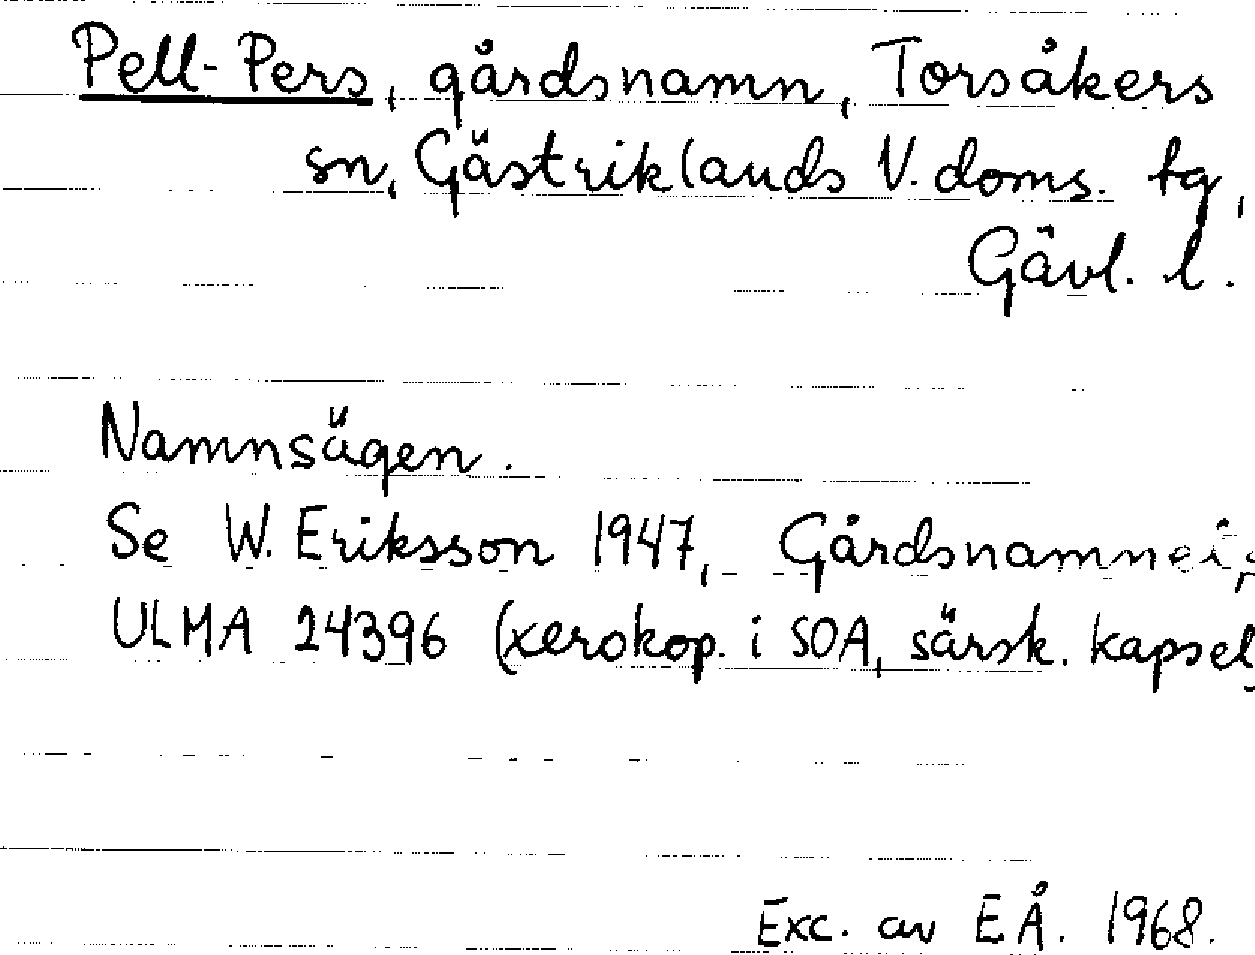 Pell-Pers, gårdsnamn, Torsåkers
sn, Gästriklands V. doms. tg,
Gävl. l.
Namnsägen.
Se W. Eriksson 1947, Gårdsnamnet
ULMA 24396 (xerokop. i SOA, särsk. kapsel)
Exc. av E Å. 1968.